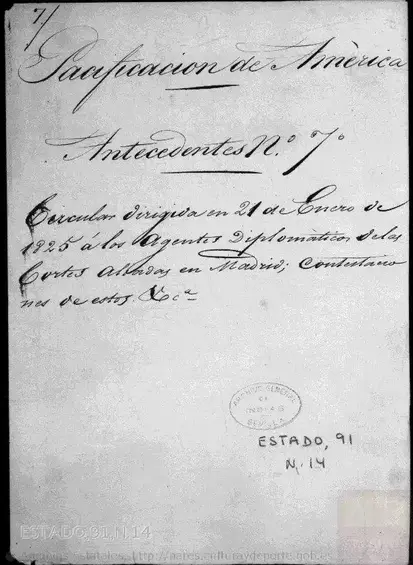 7/
Pacificacion de América
Antecedentes N.º 7º
Circular dirigida en 21 de Enero de
1825 á los Agentes Diplomáticos de las
Cortes Aliadas en Madrid; contestacio
nes de estos &cª
ARCHIVO GENERAL
SEVILLA
ESTADO, 91
N. 14
ESTADO,91,N.14
http://pares.culturaydeporte.gob.es